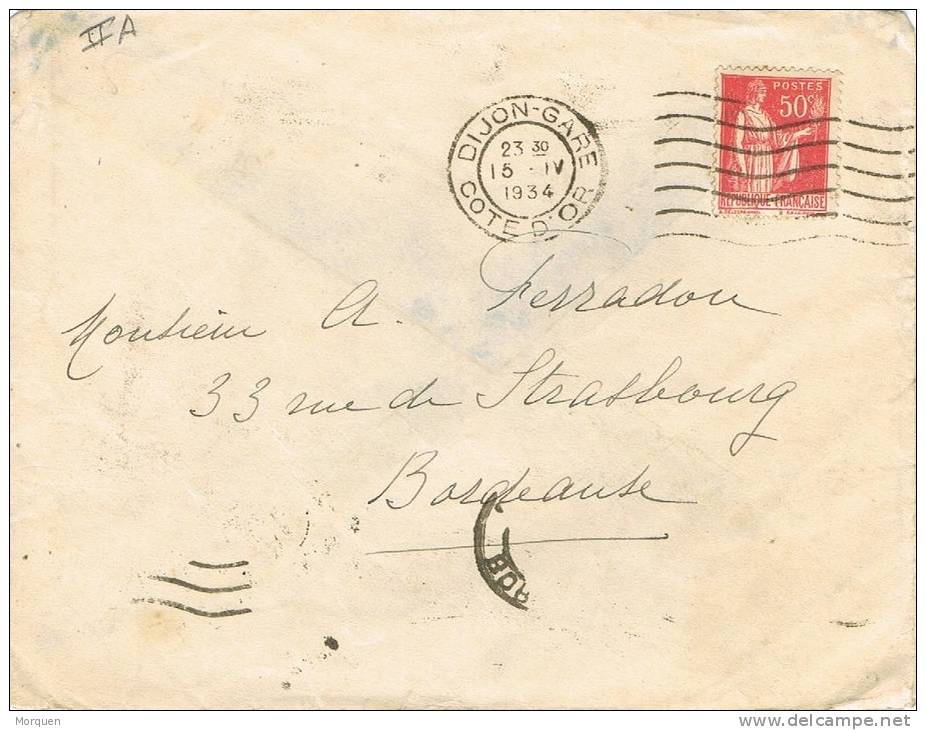 IIA
POSTES
50c
RÉPUBLIQUE-FRANÇAISE
DIJON-GARE
23 30
15 - IV
1934
COTE D'OR
Monsieur A. Ferradou
33 rue de Strasbourg
Bordeaux
BOR
Morquen
www.delcampe.net